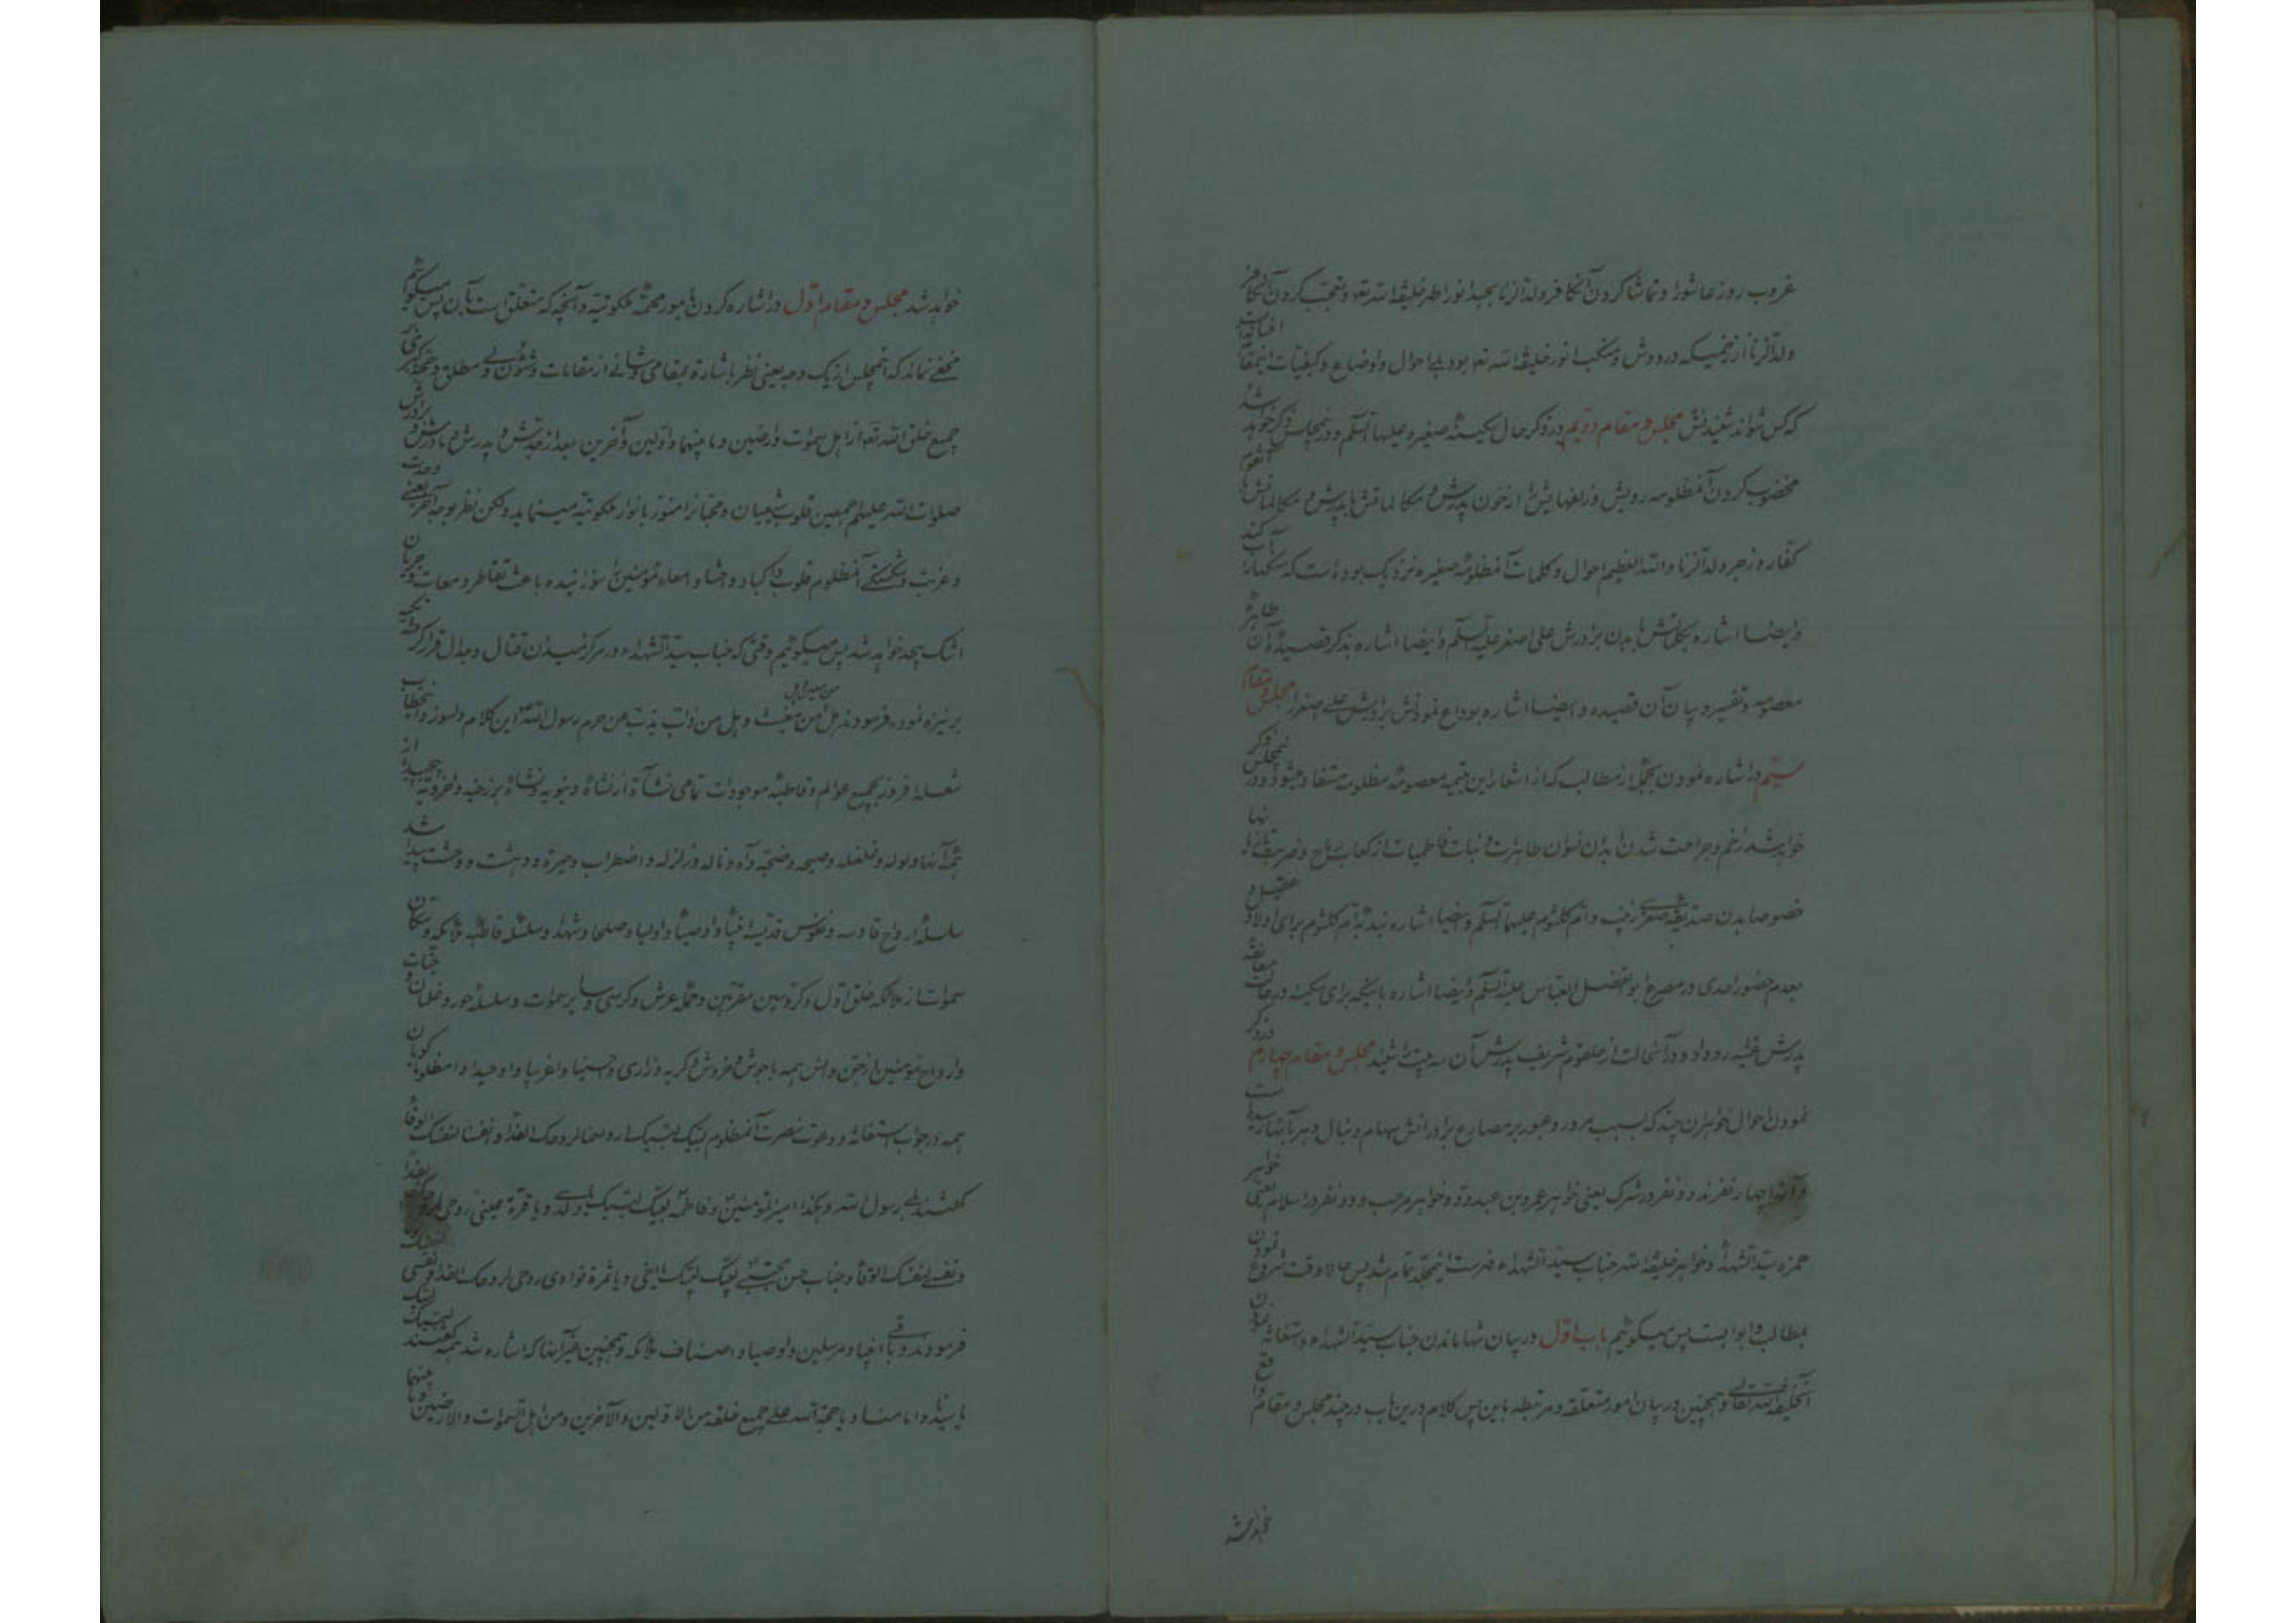 غروب روز عاشورا و تماشا کردن آن کافر ولد الزنا بجسد انور اطهر خلیفة الله تعالی و تعجب کردن آن کافر
ولد الزنا از زخمیکه در دوش و منکب انور خلیفة الله تعالی بود احوال و اوضاع و کیفیات اینمقام
که کس نتواند شنیدنش مجلس و مقام دویم در ذکر حال سکینه صغیره علیها السلام و در اینمجلس ذکر خواهد شد
مخضوب کردن آنمظلومه رویش و زلفهایش را از خون پدرش و مکالماتش با پدرش و مکالماتش با
کفار و زجر ولد الزنا والله العظیم احوال و کلمات آنمظلومه صغیره نزدیک بوده است که سنگ را آب کند
و ایضا اشاره بکلماتش با بدن برادرش علی اصغر علیه السلام و ایضا اشاره بذکر قصیده آن طاهره
معصومه و تفسیر و بیان آن قصیده و ایضا اشاره بوداع نمودنش برادرش علی اصغر را مجلس و مقام
سیم در اشاره نمودن بجمله از مطالب که از اشعار این یتیمه معصومه مظلومه مستفاد میشود و در اینمجلس ذکر
خواهد شد زخم و جراحت شدن ابدان نسوان طاهرات و بنات فاطمیات از کعاب رماح و ضرب تازیانها
خصوصا بدن صدیقه صغری زینب و ام کلثوم علیهما السلام و ایضا اشاره بندبه ام کلثوم برای اولاد عقیل و
بعدم حضور احدی در مصرع ابو الفضل العباس علیه السلام و ایضا اشاره باینکه برای سکینه در حالت معانقه
پدرش غشیه رو داد و در آنحالت از حلقوم شریف پدرش آن سه بیت را شنید مجلس و مقام چهارم در ذکر
نمودن احوال خواهران چند که بسبب مرور و عبور بر مصارع برادرانش سهام و نبال دهر بآنها رسیده است
و آنها چهار نفرند دو نفر در شرک یعنی خواهر عمرو بن عبدود و خواهر مرحب و دو نفر در اسلام یعنی خواهر
حمزه سید الشهداء و خواهر خلیفة الله جناب سید الشهداء فهرست اینمجلد تمام شد پس حالا وقت شروع نمودن
بمطالب و ابوابست پس میگوئیم باب اول در بیان تنها ماندن جناب سید الشهداء و استغاثه نمودن
آنخلیفة الله تعالی و همچنین در بیان امور متعلقه و مرتبطه باین پس کلام در این باب در چند مجلس و مقام واقع
خواهد شد
خواهد شد مجلس و مقام اول در اشاره کردن بامور مهمه ملکوتیه و آنچه که متعلق است بآن پس میگوئیم
مخفی نماند که اینمجلس از یک وجه یعنی نظر باشاره بمقامی و شانی از مقامات و شئون ولی مطلق و حجة
جمیع خلق الله تعالی از اهل سموات و ارضین و ما بینهما و اولین و آخرین بعد از جدش و پدرش و مادرش و برادرش
صلوات الله علیهم اجمعین قلوب شیعیان و محبان را منور بانوار ملکوتیه مینماید ولکن نظر بوجه آخر یعنی وحدت
و غربت و شکستگی آنمظلوم قلوب و اکباد و احشاء و امعاء مؤمنین را سوزانیده باعث تقاطر دمعات و جریان
اشک بیحد خواهد شد پس میگوئیم وقتی که جناب سید الشهداء در مرکز میدان قتال و جدال قرار گرفته تکیه
بر نیزه نموده فرمودند هل من مغیث و هل من ذاب یذب عن حرم رسول الله این کلام دلسوز و اینخطاب
شعله افروز بجمیع عوالم و قاطبه موجودات تمامی نشآت از نشاة دنیویه و نشاة برزخیه و اخرویه
همه آنها ولوله و غلغله و صیحه و ضجه و آه و ناله و زلزله و اضطراب و حیرة و دهشت و وحشت پیدا شد
سلسله ارواح قادسه و نفوس قدسیه انبیاء و اوصیاء و اولیا و صلحا و شهدا و سلسله قاطبه ملائکه و سکان
سموات از ملائکه خلق اول و کروبین مقربین و حمله عرش و کرسی و سایر سموات و سلسله حور و غلمان و جنات
و ارواح مؤمنین از جن و انس همه با جوش و خروش و گریه و زاری وا حسینا وا غریبا وا وحیدا وا مظلوما گویان
همه در جواب استغاثه و دعوت نصرت آنمظلوم لبیک لبیک ارواحنا لروحک الفداء و انفسنا لنفسک الوقاء
گفتند پس رسول الله و هکذا امیر المؤمنین و فاطمه لبیک لبیک یا ولدی و یا قرة عینی روحی لروحک الفداء
و نفسی لنفسک الوقاء و جناب حسن مجتبی لبیک لبیک یا اخی و یا ثمرة فوادی روحی لروحک الفداء و نفسی لنفسک
فرمودند و باقی انبیا و مرسلین و اوصیا و اصناف ملائکه و همچنین غیر آنها که اشاره شد همه گفتند لبیک
یا سیدنا و امامنا و یا حجة الله علی جمیع خلقه من الاولین و الآخرین و من اهل السموات و الارضین و ما بینهما